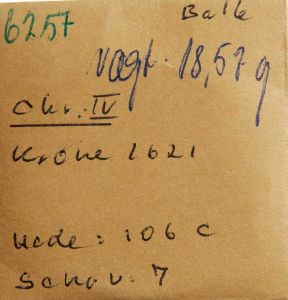 6257
Balle
vægt. 18,57 g
Chr. IV
Krone 1621
Hede: 106 C
Schou: 7